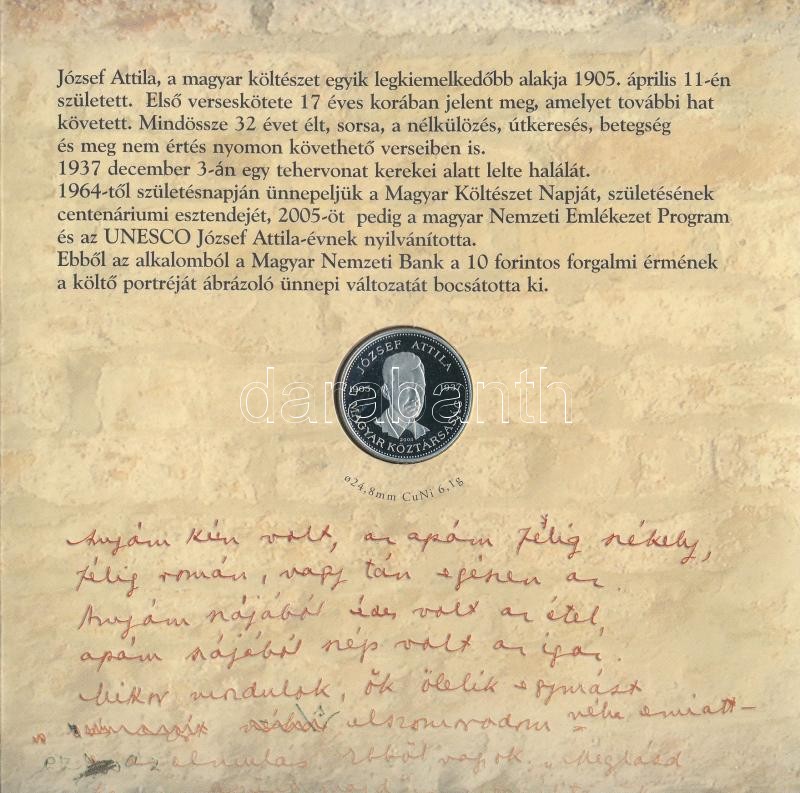 József Attila, a magyar költészet egyik legkiemelkedőbb alakja 1905. április 11-én
született. Első verseskötete 17 éves korában jelent meg, amelyet további hat
követett. Mindössze 32 évet élt, sorsa, a nélkülözés, útkeresés, betegség
és meg nem értés nyomon követhető verseiben is.
1937 december 3-án egy tehervonat kerekei alatt lelte halálát.
1964-től születésnapján ünnepeljük a Magyar Költészet Napját, születésének
centenáriumi esztendejét, 2005-öt pedig a magyar Nemzeti Emlékezet Program
és az UNESCO József Attila-évnek nyilvánította.
Ebből az alkalomból a Magyar Nemzeti Bank a 10 forintos forgalmi érmének
a költő portréját ábrázoló ünnepi változatát bocsátotta ki.
JÓZSEF ATTILA
1905 1937
darabanth
2005
MAGYAR KÖZTÁRSASÁG
ø24,8mm CuNi 6,1g
Anyám kún volt, az apám félig székely,
félig román, vagy tán egészen az.
Anyám szájából édes volt az étel,
apám szájából szép volt az igaz.
Mikor mozdulok, ők ölelik egymást
elszomorodom néha emiatt –
ez az elmulás. Ebből vagyok. „Meglásd